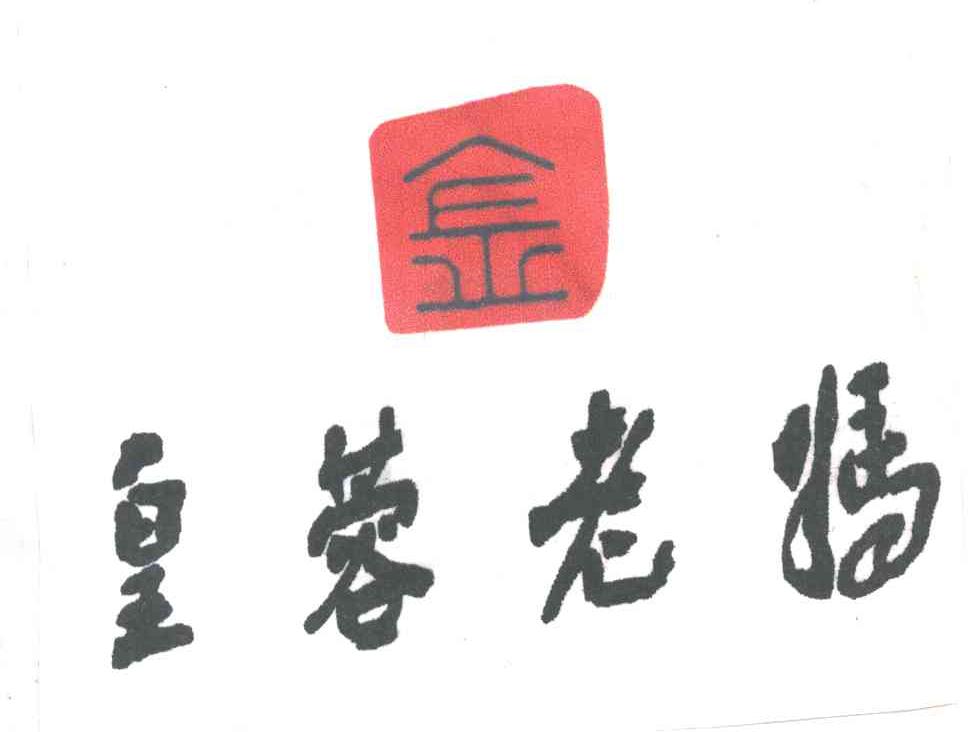 金
皇蓉老媽